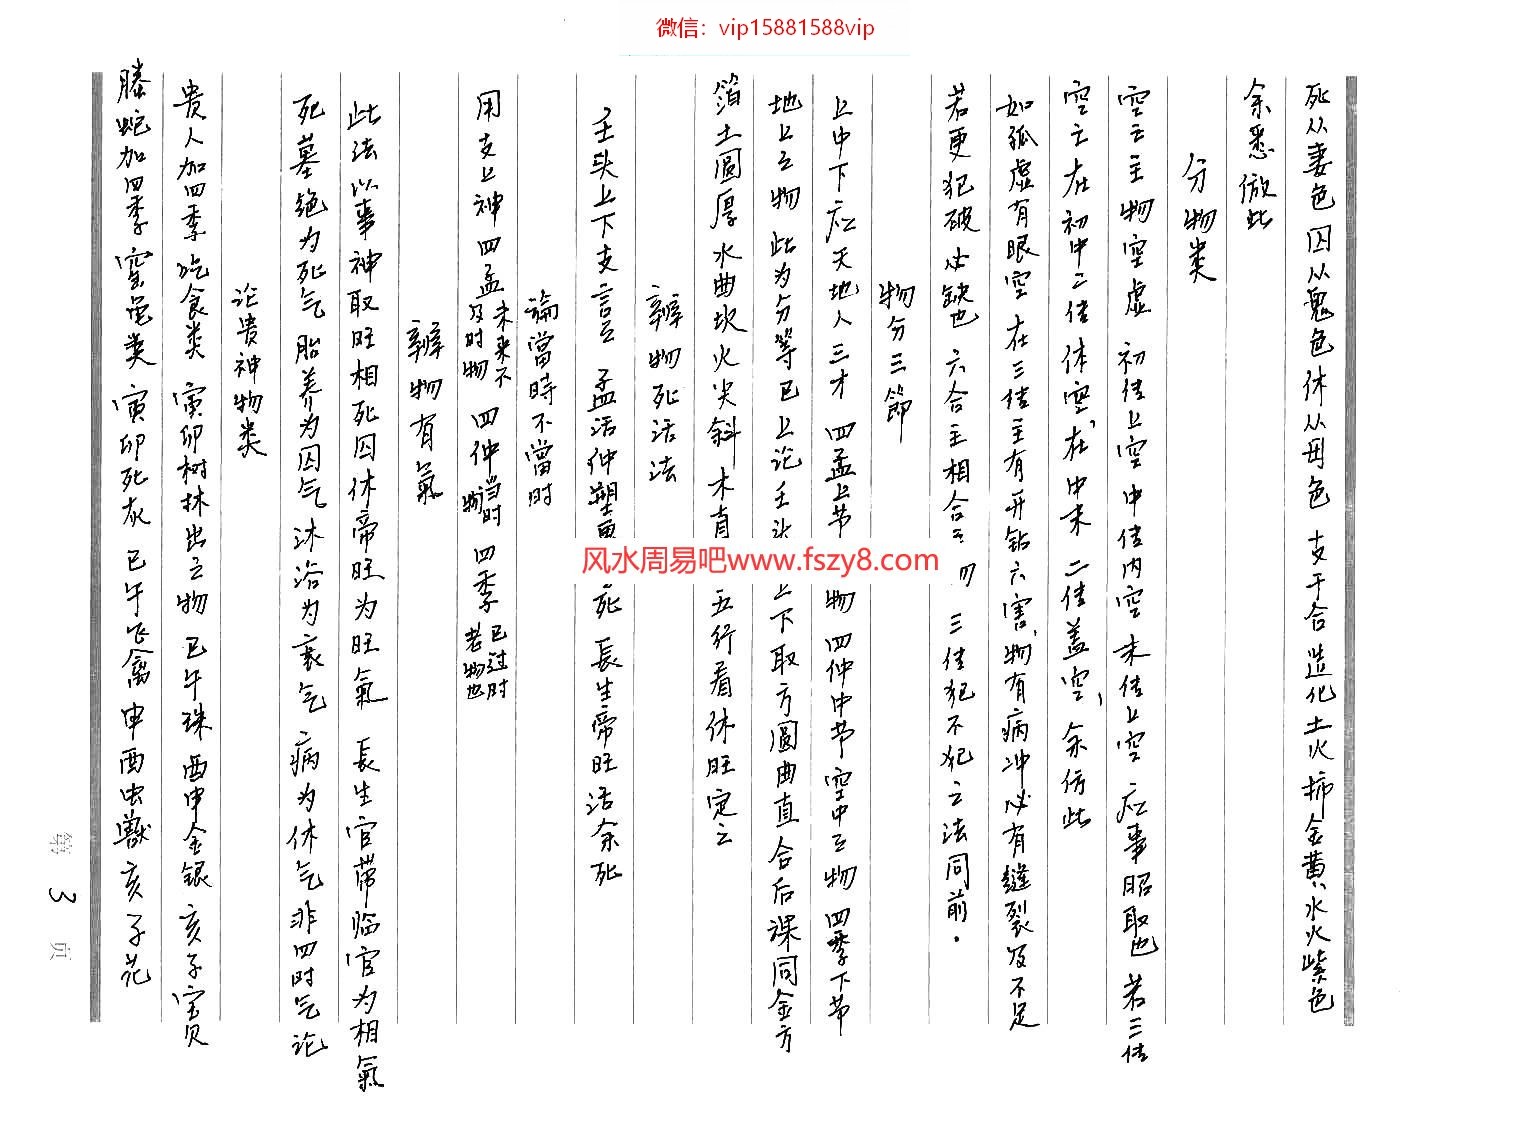 微信：vip15881588vip
死从妻色 囚从鬼色 休从母色 支干合造化土火柿金黄水火紫色
余悉倣此
分物类
空亡主物空虚 初传上空 中传内空 末传上空 应事昭取也 若三传
空亡在初中二传体空、在中末二传盖空、余仿此
如孤虚有眼空 在三传主有开钻六害、物有病冲必有缝裂及不足
若更犯破必缺也 六合主相合 三传犯不犯之法同前.
物分三節
上中下应天地人三才 四孟上节 物 四仲中节空中之物 四季下节
地上之物 此为分等已上论壬 上下取方圆曲直合后课同金方
箔土圆厚水曲坎火尖斜木直 五行看休旺定之
辨物死活法
壬头上下支言之 孟活仲塑 死 長生帝旺活余死
論當時不當时
用支上神四孟未来不及时物 四仲当时物 四季已过时老物也
辨物有氣
此法以事神取旺相死囚休帝旺为旺氣 長生官带临官为相氣
死墓绝为死气 胎养为囚气 沐浴为衰气 病为休气非四时气论
论贵神物类
贵人加四季吃食类 寅卯树林出之物 巳午珠 酉申金银 亥子宝贝
螣蛇加四季窑黾类 寅卯死灰 巳午飞禽 申酉虫獸 亥子花
风水周易吧www.fszy8.com
第 3 页